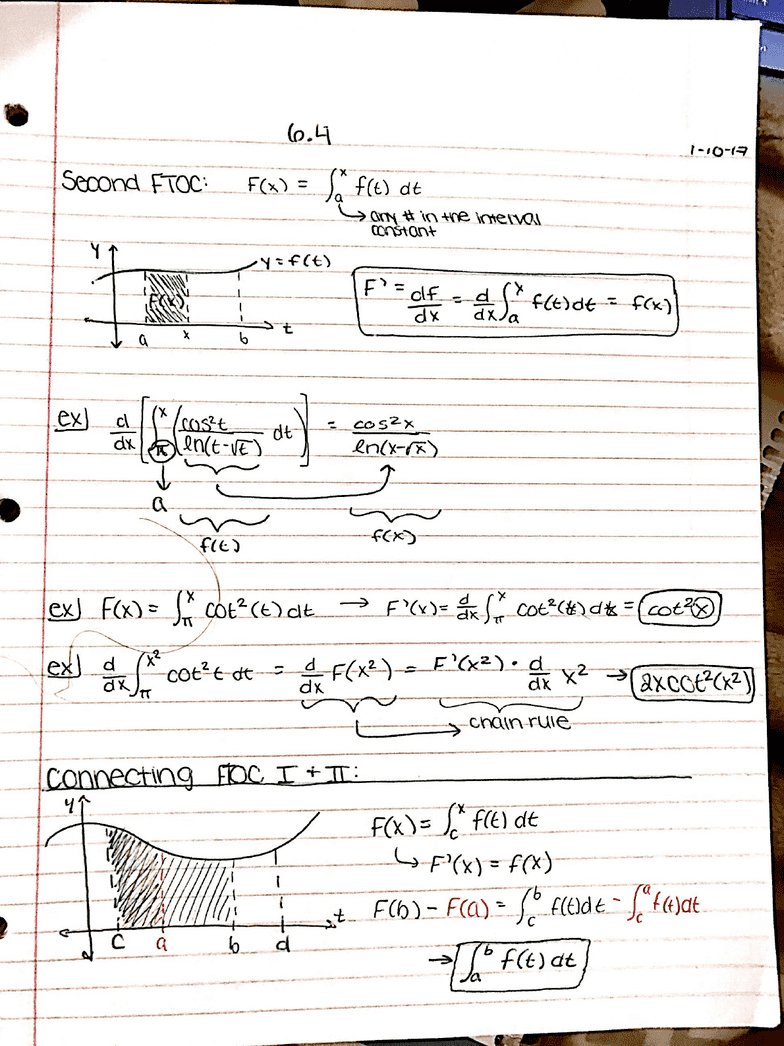 6.4
1-10-17
Second FTOC: F(x) = ∫ₐˣ f(t) dt
↳ any # in the interval
constant
y
y = f(t)
F(x)
a x b t
F' = df/dx = d/dx ∫ₐˣ f(t) dt = f(x)
ex] d/dx [∫_π^x (cos²t / ln(t-√t) dt)] = cos²x / ln(x-√x)
a
f(t) f(x)
ex] F(x) = ∫_π^x cot²(t) dt → F'(x) = d/dx ∫_π^x cot²(t) dt = cot²x
ex] d/dx ∫_π^(x²) cot²t dt = d/dx F(x²) = F'(x²) · d/dx x² → 2xcot²(x²)
chain rule
Connecting FTOC I + II:
y
c a b d t
F(x) = ∫_c^x f(t) dt
↳ F'(x) = f(x)
F(b) - F(a) = ∫_c^b f(t)dt - ∫_c^a f(t)dt
→ ∫ₐᵇ f(t) dt